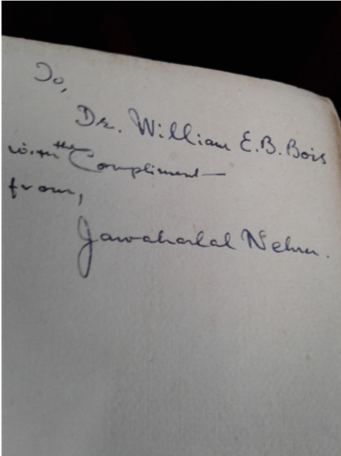 To,
Dr. William E.B. Bois
with the Compliment
from,
Jawaharlal Nehru.